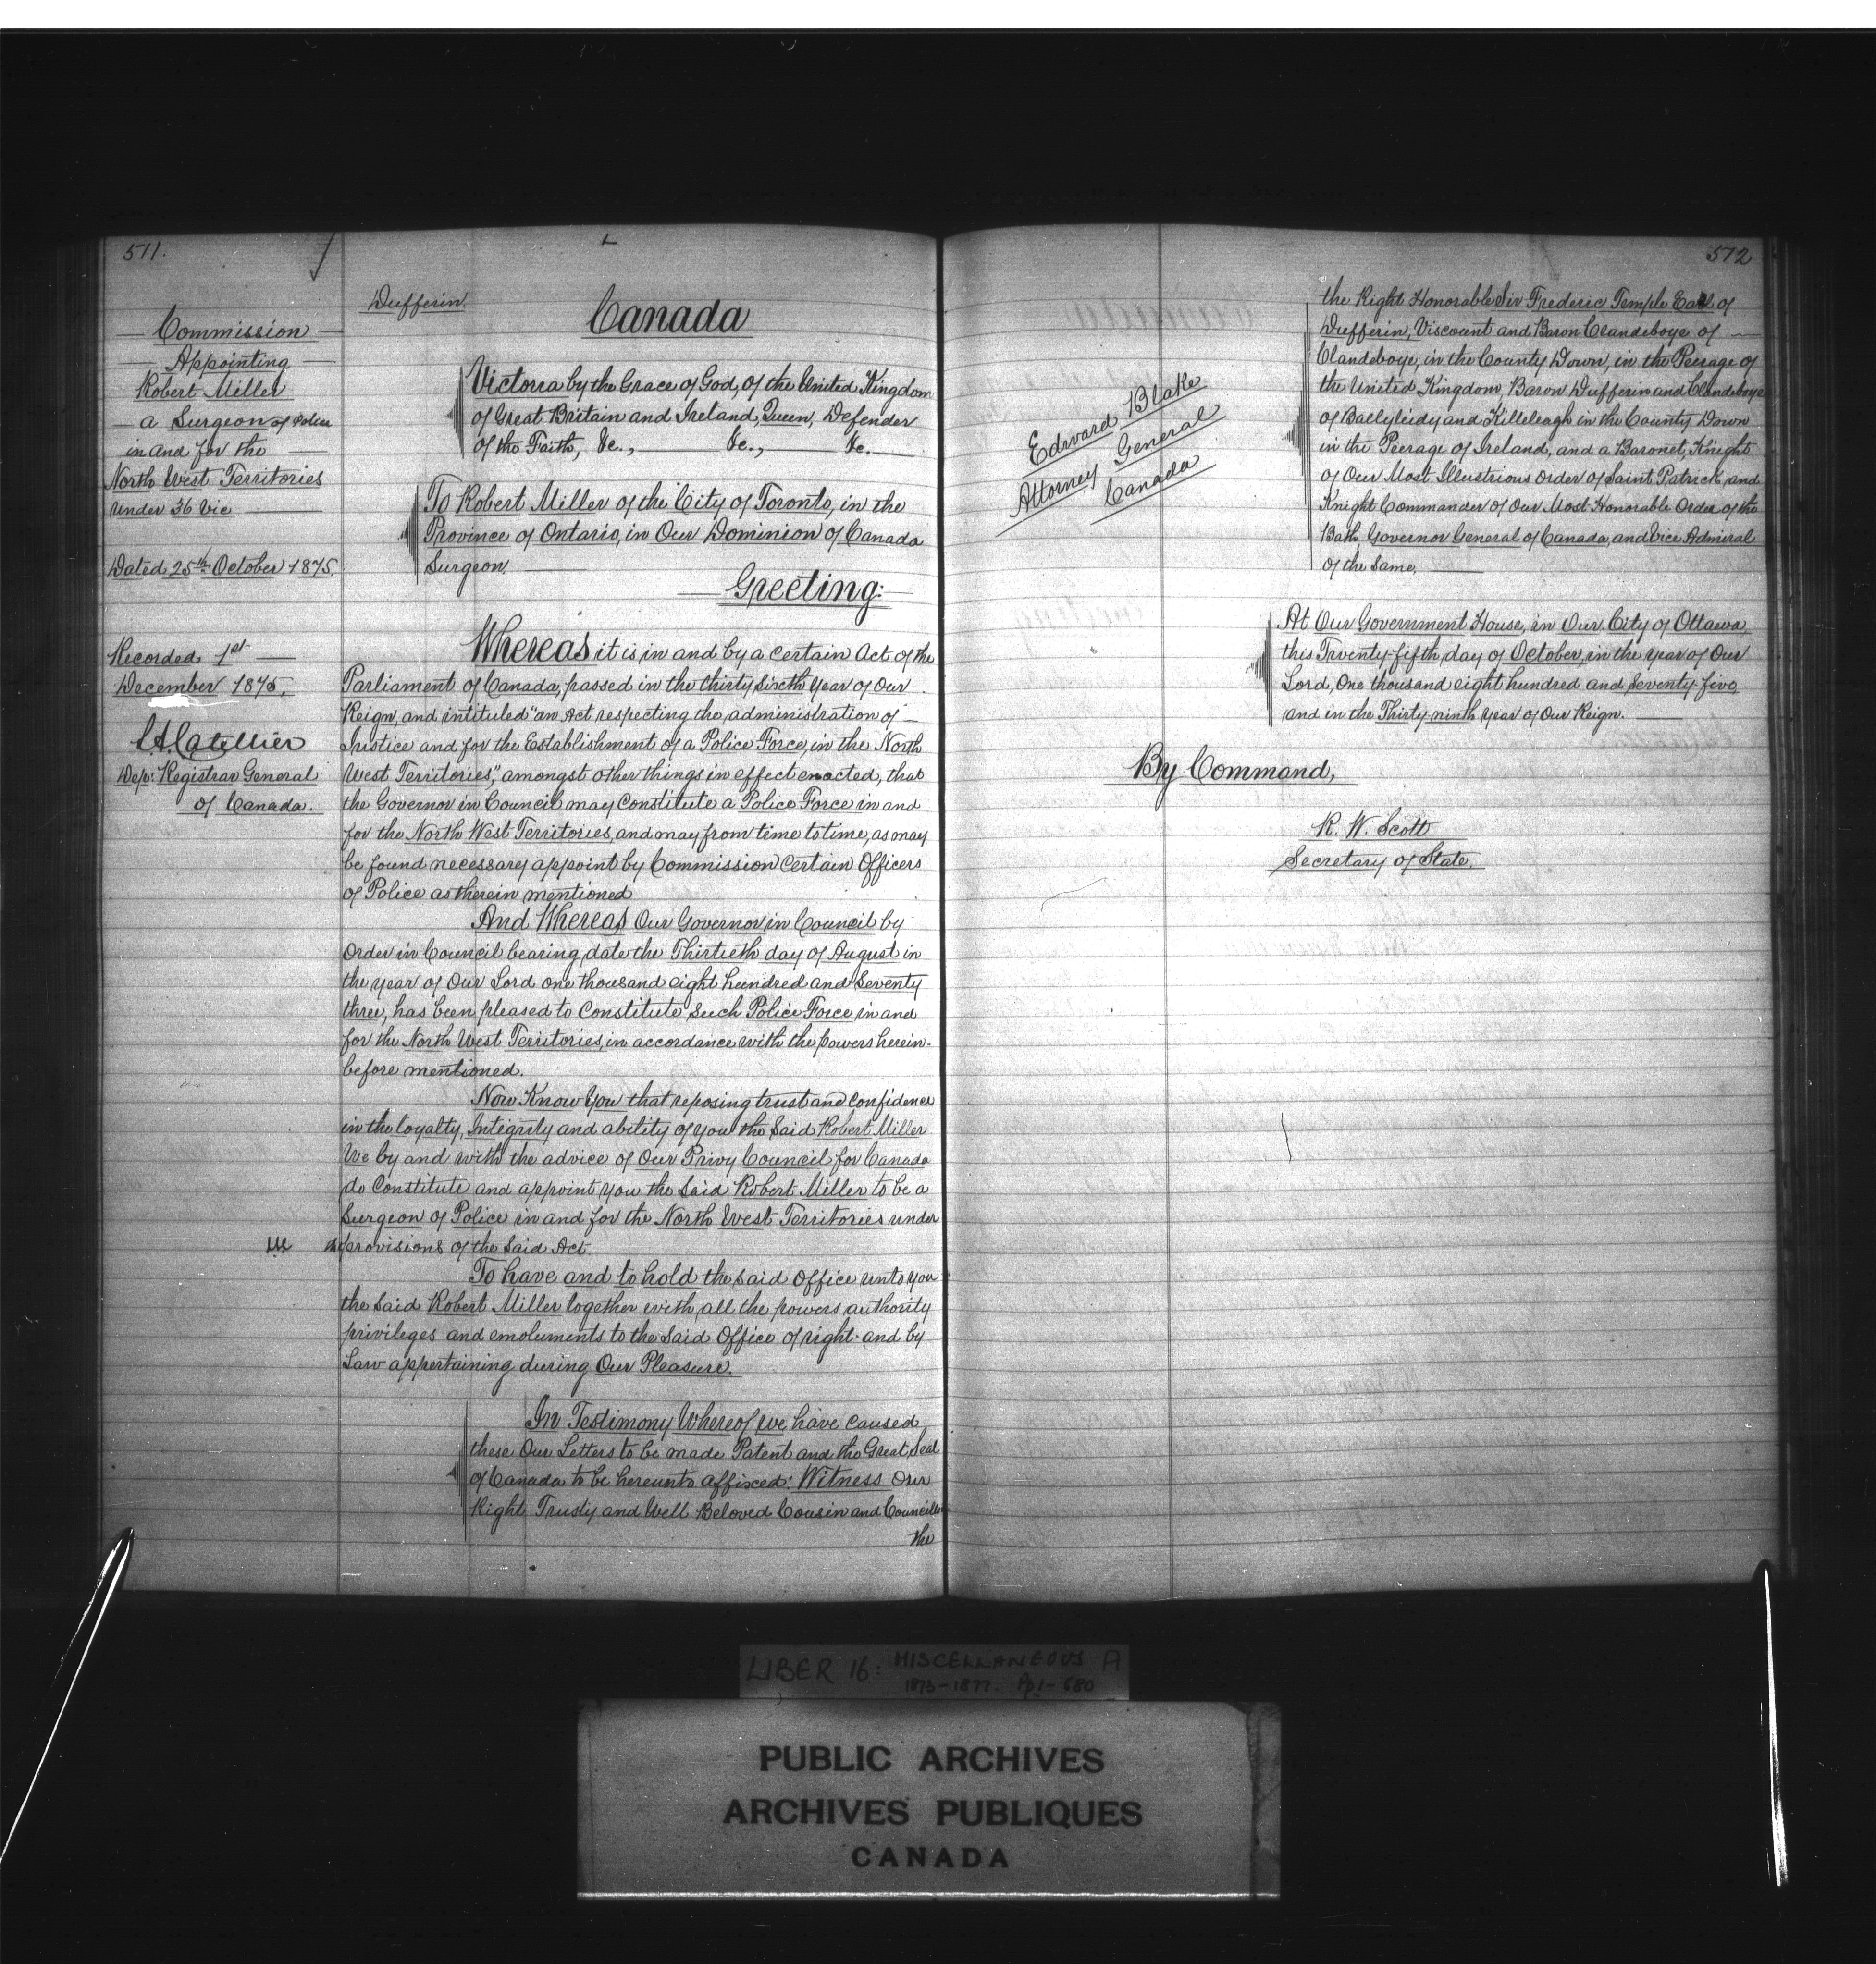 511.
Commission
Appointing
Robert Miller
a Surgeon of Police
in and for the
North West Territories
under 36 Vic
Dated 25th October 1875.
Recorded 1st
December 1875.
Dep: Registrar General
of Canada.
Dufferin
Canada
Victoria by the Grace of God, of the United Kingdom
of Great Britain and Ireland, Queen, Defender
of the Faith, &c., &c., &c.
To Robert Miller of the City of Toronto, in the
Province of Ontario, in Our Dominion of Canada
Surgeon.
Greeting:
Whereas it is in and by a certain Act of the
Parliament of Canada, passed in the thirty sixth year of Our
Reign, and intituled "an Act respecting the administration of
Justice and for the Establishment of a Police Force, in the North
West Territories", amongst other things in effect enacted, that
the Governor in Council may constitute a Police Force in and
for the North West Territories, and may from time to time, as may
be found necessary appoint by Commission Certain Officers
of Police as therein mentioned
And Whereas Our Governor in Council by
Order in Council bearing date the Thirtieth day of August in
the year of Our Lord one thousand eight hundred and Seventy
three, has been pleased to Constitute Such Police Force in and
for the North West Territories, in accordance with the powers herein-
before mentioned.
Now Know You that reposing trust and confidence
in the loyalty, Integrity and ability of you the Said Robert Miller
We by and with the advice of Our Privy Council for Canada
do Constitute and appoint you the Said Robert Miller to be a
Surgeon of Police in and for the North West Territories under
the provisions of the Said Act.
To have and to hold the said Office unto you
the Said Robert Miller together with all the powers authority
privileges and emoluments to the Said Office of right and by
Law appertaining during Our Pleasure.
In Testimony Whereof we have caused
these Our Letters to be made Patent and the Great Seal
of Canada to be hereunto affixed: Witness Our
Right Trusty and Well Beloved Cousin and Councillor
the
512
Edward Blake
Attorney General
Canada
the Right Honorable Sir Frederic Temple Earl of
Dufferin, Viscount and Baron Clandeboye of
Clandeboye, in the County Down, in the Peerage of
the United Kingdom, Baron Dufferin and Clandeboye
of Ballyleidy and Killeleagh in the County Down
in the Peerage of Ireland, and a Baronet, Knight
of Our Most Illustrious Order of Saint Patrick, and
Knight Commander of Our Most Honorable Order of the
Bath, Governor General of Canada, and Vice Admiral
of the Same.
At Our Government House, in Our City of Ottawa,
this Twenty-fifth day of October, in the year of Our
Lord, One thousand eight hundred and seventy-five
and in the Thirty ninth year of Our Reign.
By Command,
R. W. Scott
Secretary of State.
LIBER 16: MISCELLANEOUS A
1873-1877. Pp 1-680
PUBLIC ARCHIVES
ARCHIVES PUBLIQUES
CANADA